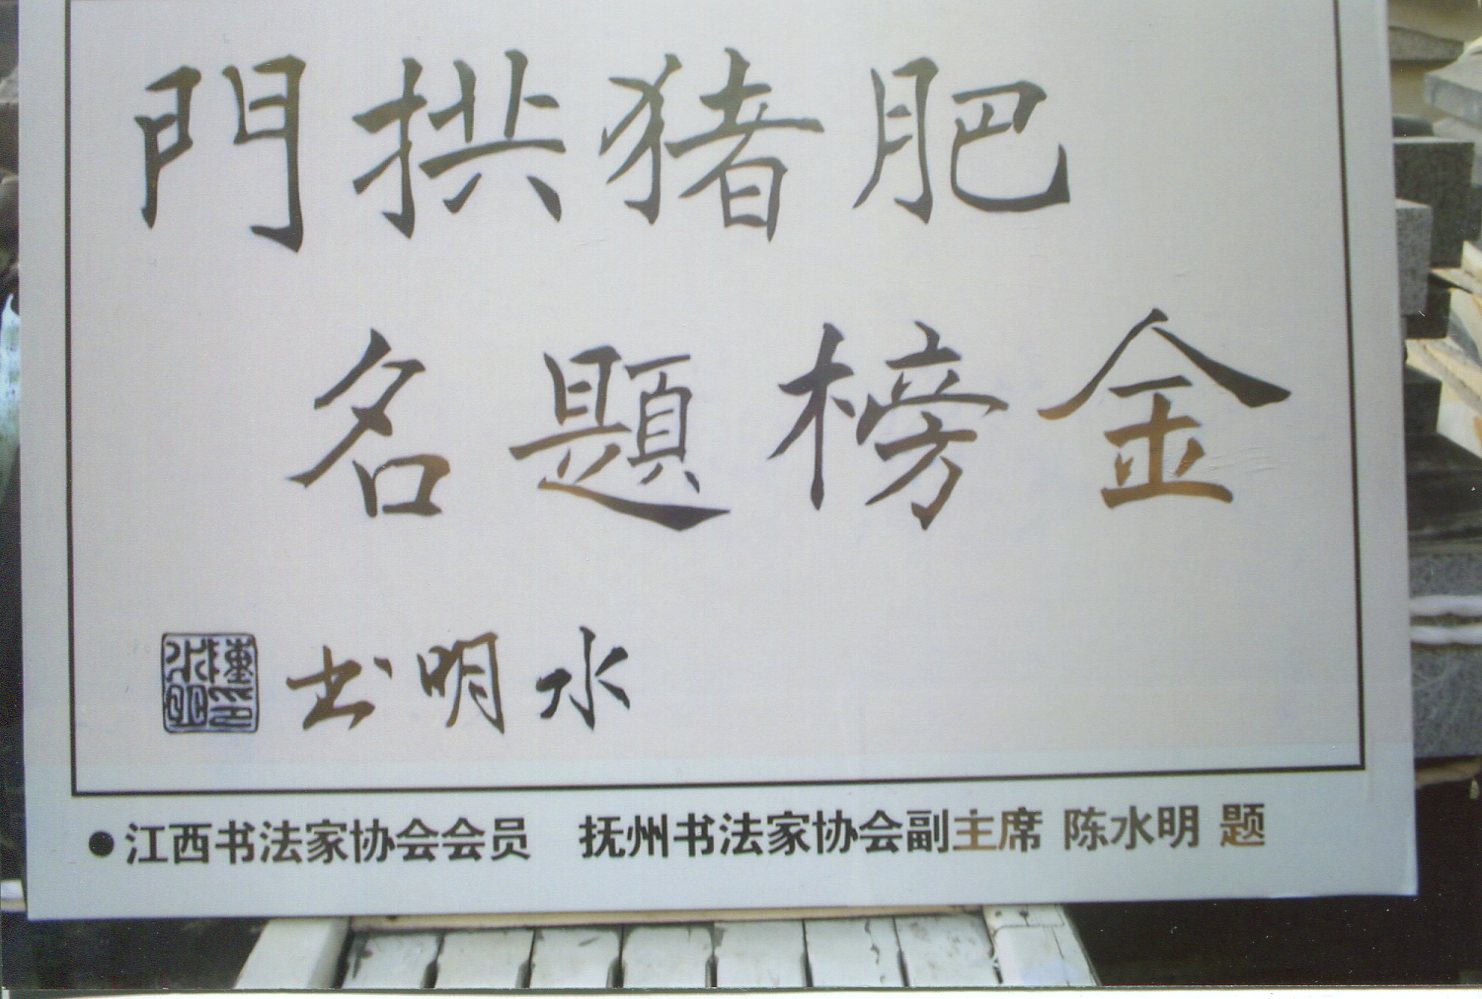 肥猪拱門
金榜題名
水明书
●江西书法家协会会员 抚州书法家协会副主席 陈水明 题